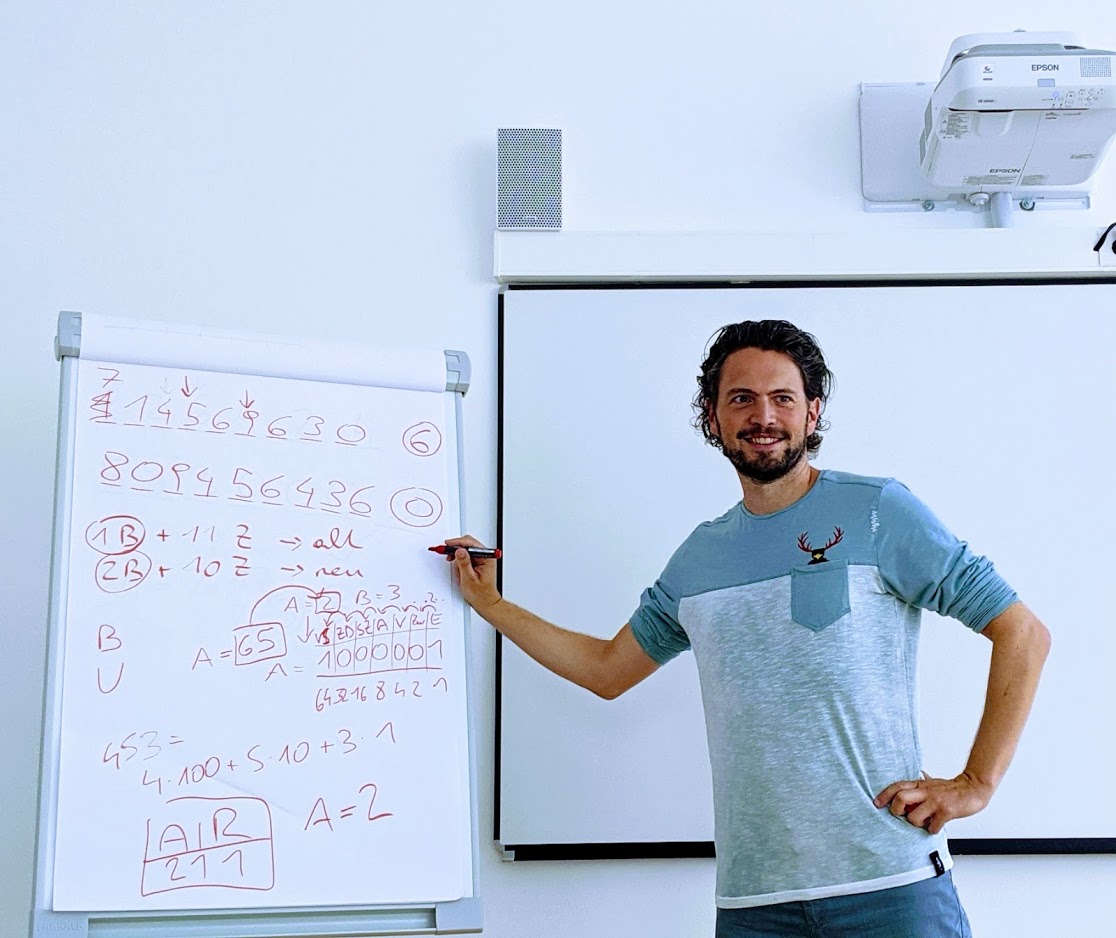 EPSON
EPSON
7
1 1 4 5 6 9 6 3 0 6
8 0 9 4 5 6 4 3 6 0
1B + 11 Z → alt
2B + 10 Z → neu
A = 2 B = 3
B
ZD SZ A V Zw E
A = 65
U
A = 1 0 0 0 0 0 1
64 32 16 8 4 2 1
453 =
4·100 + 5·10 + 3·1
A I R
2 1 1
A = 2